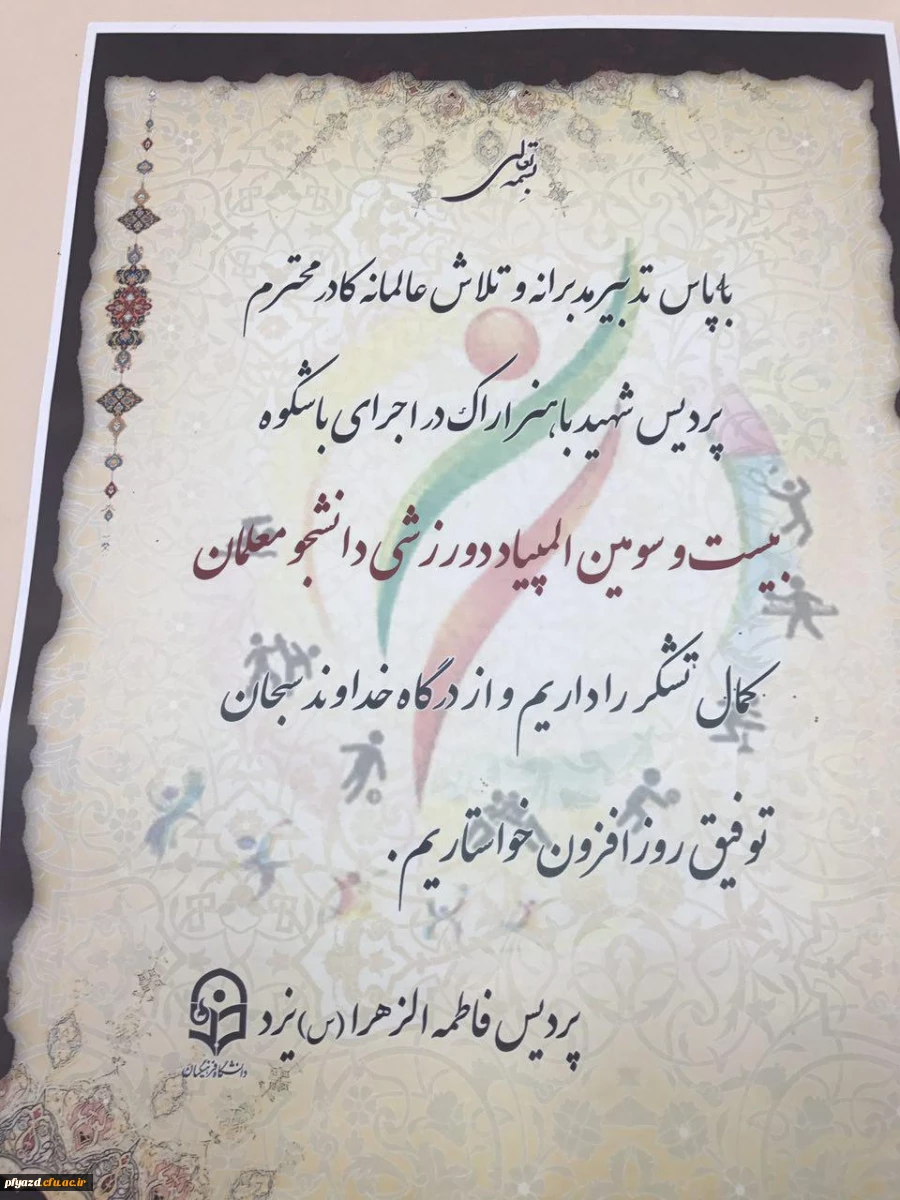 بسمه تعالی
با پاس تدبیر مدبرانه و تلاش عالمانه کادر محترم
پردیس شهید باهنر اراک در اجرای باشکوه
بیست و سومین المپیاد ورزشی دانشجو معلمان
کمال تشکر را داریم و از درگاه خداوند سبحان
توفیق روز افزون خواستاریم.
پردیس فاطمه الزهرا (س) یزد
دانشگاه فرهنگیان
pfyazd.cfu.ac.ir